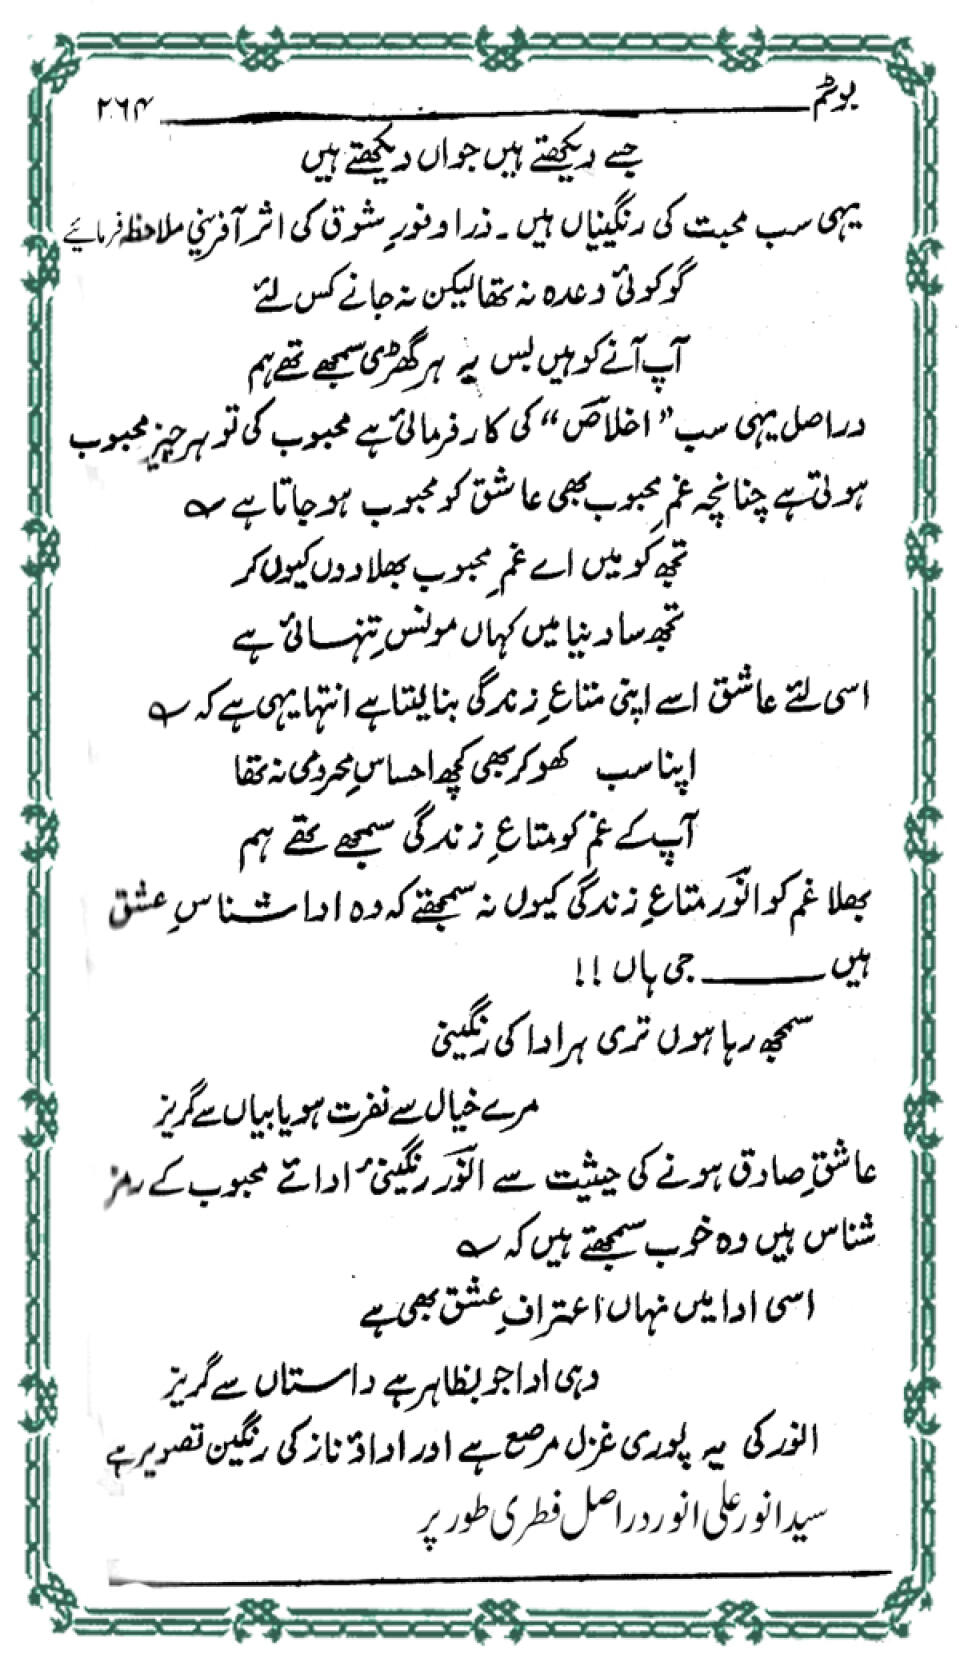 بوئے غم ۲۶۴
جسے دیکھتے ہیں جواں دیکھتے ہیں
یہی سب محبت کی رنگینیاں ہیں۔ ذرا وفورِ شوق کی اثر آفرینی ملاحظہ فرمائیے
گو کوئی وعدہ نہ تھا لیکن نہ جانے کس لئے
آپ آنے کو ہیں بس یہ ہر گھڑی سمجھے تھے ہم
دراصل یہی سب “اخلاص” کی کارفرمائی ہے محبوب کی تو ہر چیز محبوب
ہوتی ہے چنانچہ غمِ محبوب بھی عاشق کو محبوب ہو جاتا ہے ؎
تجھ کو میں اے غمِ محبوب بھلا دوں کیوں کر
تجھ سا دنیا میں کہاں مونسِ تنہائی ہے
اسی لئے عاشق اسے اپنی متاعِ زندگی بنا لیتا ہے انتہا یہی ہے کہ ؎
اپنا سب کھو کر بھی کچھ احساسِ محرومی نہ تھا
آپ کے غم کو متاعِ زندگی سمجھے تھے ہم
بھلا غم کو انور متاعِ زندگی کیوں نہ سمجھتے کہ وہ ادا شناسِ عشق
ہیں ——— جی ہاں !!
سمجھ رہا ہوں تری ہر ادا کی رنگینی
مرے خیال سے نفرت ہو یا بیاں سے گریز
عاشقِ صادق ہونے کی حیثیت سے انور رنگینیٔ ادائے محبوب کے رمز
شناس ہیں وہ خوب سمجھتے ہیں کہ ؎
اسی ادا میں نہاں اعترافِ عشق بھی ہے
وہی ادا جو بظاہر ہے داستاں سے گریز
انور کی یہ پوری غزل مرصع ہے اور اداۂ ناز کی رنگین تصویر ہے
سید انور علی انور دراصل فطری طور پر